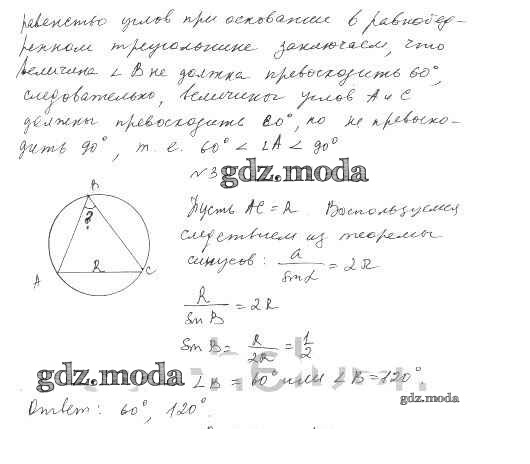 равенство углов при основании в равнобед-
ренном треугольнике заключаем, что
величина ∠ В не должна превосходить 60°,
следовательно, величины углов А и С
должны превосходить 60°, но не превосхо-
дить 90°, т. е. 60° < ∠A < 90°
№ 3
gdz.moda
B
?
A
R
C
Пусть AC = R. Воспользуемся
следствием из теоремы
синусов: a / sin α = 2R
R / sin B = 2R
sin B = R / 2R = 1/2
gdz.moda
∠B = 60° или ∠B = 120°
gdz.moda
Ответ: 60°, 120°.